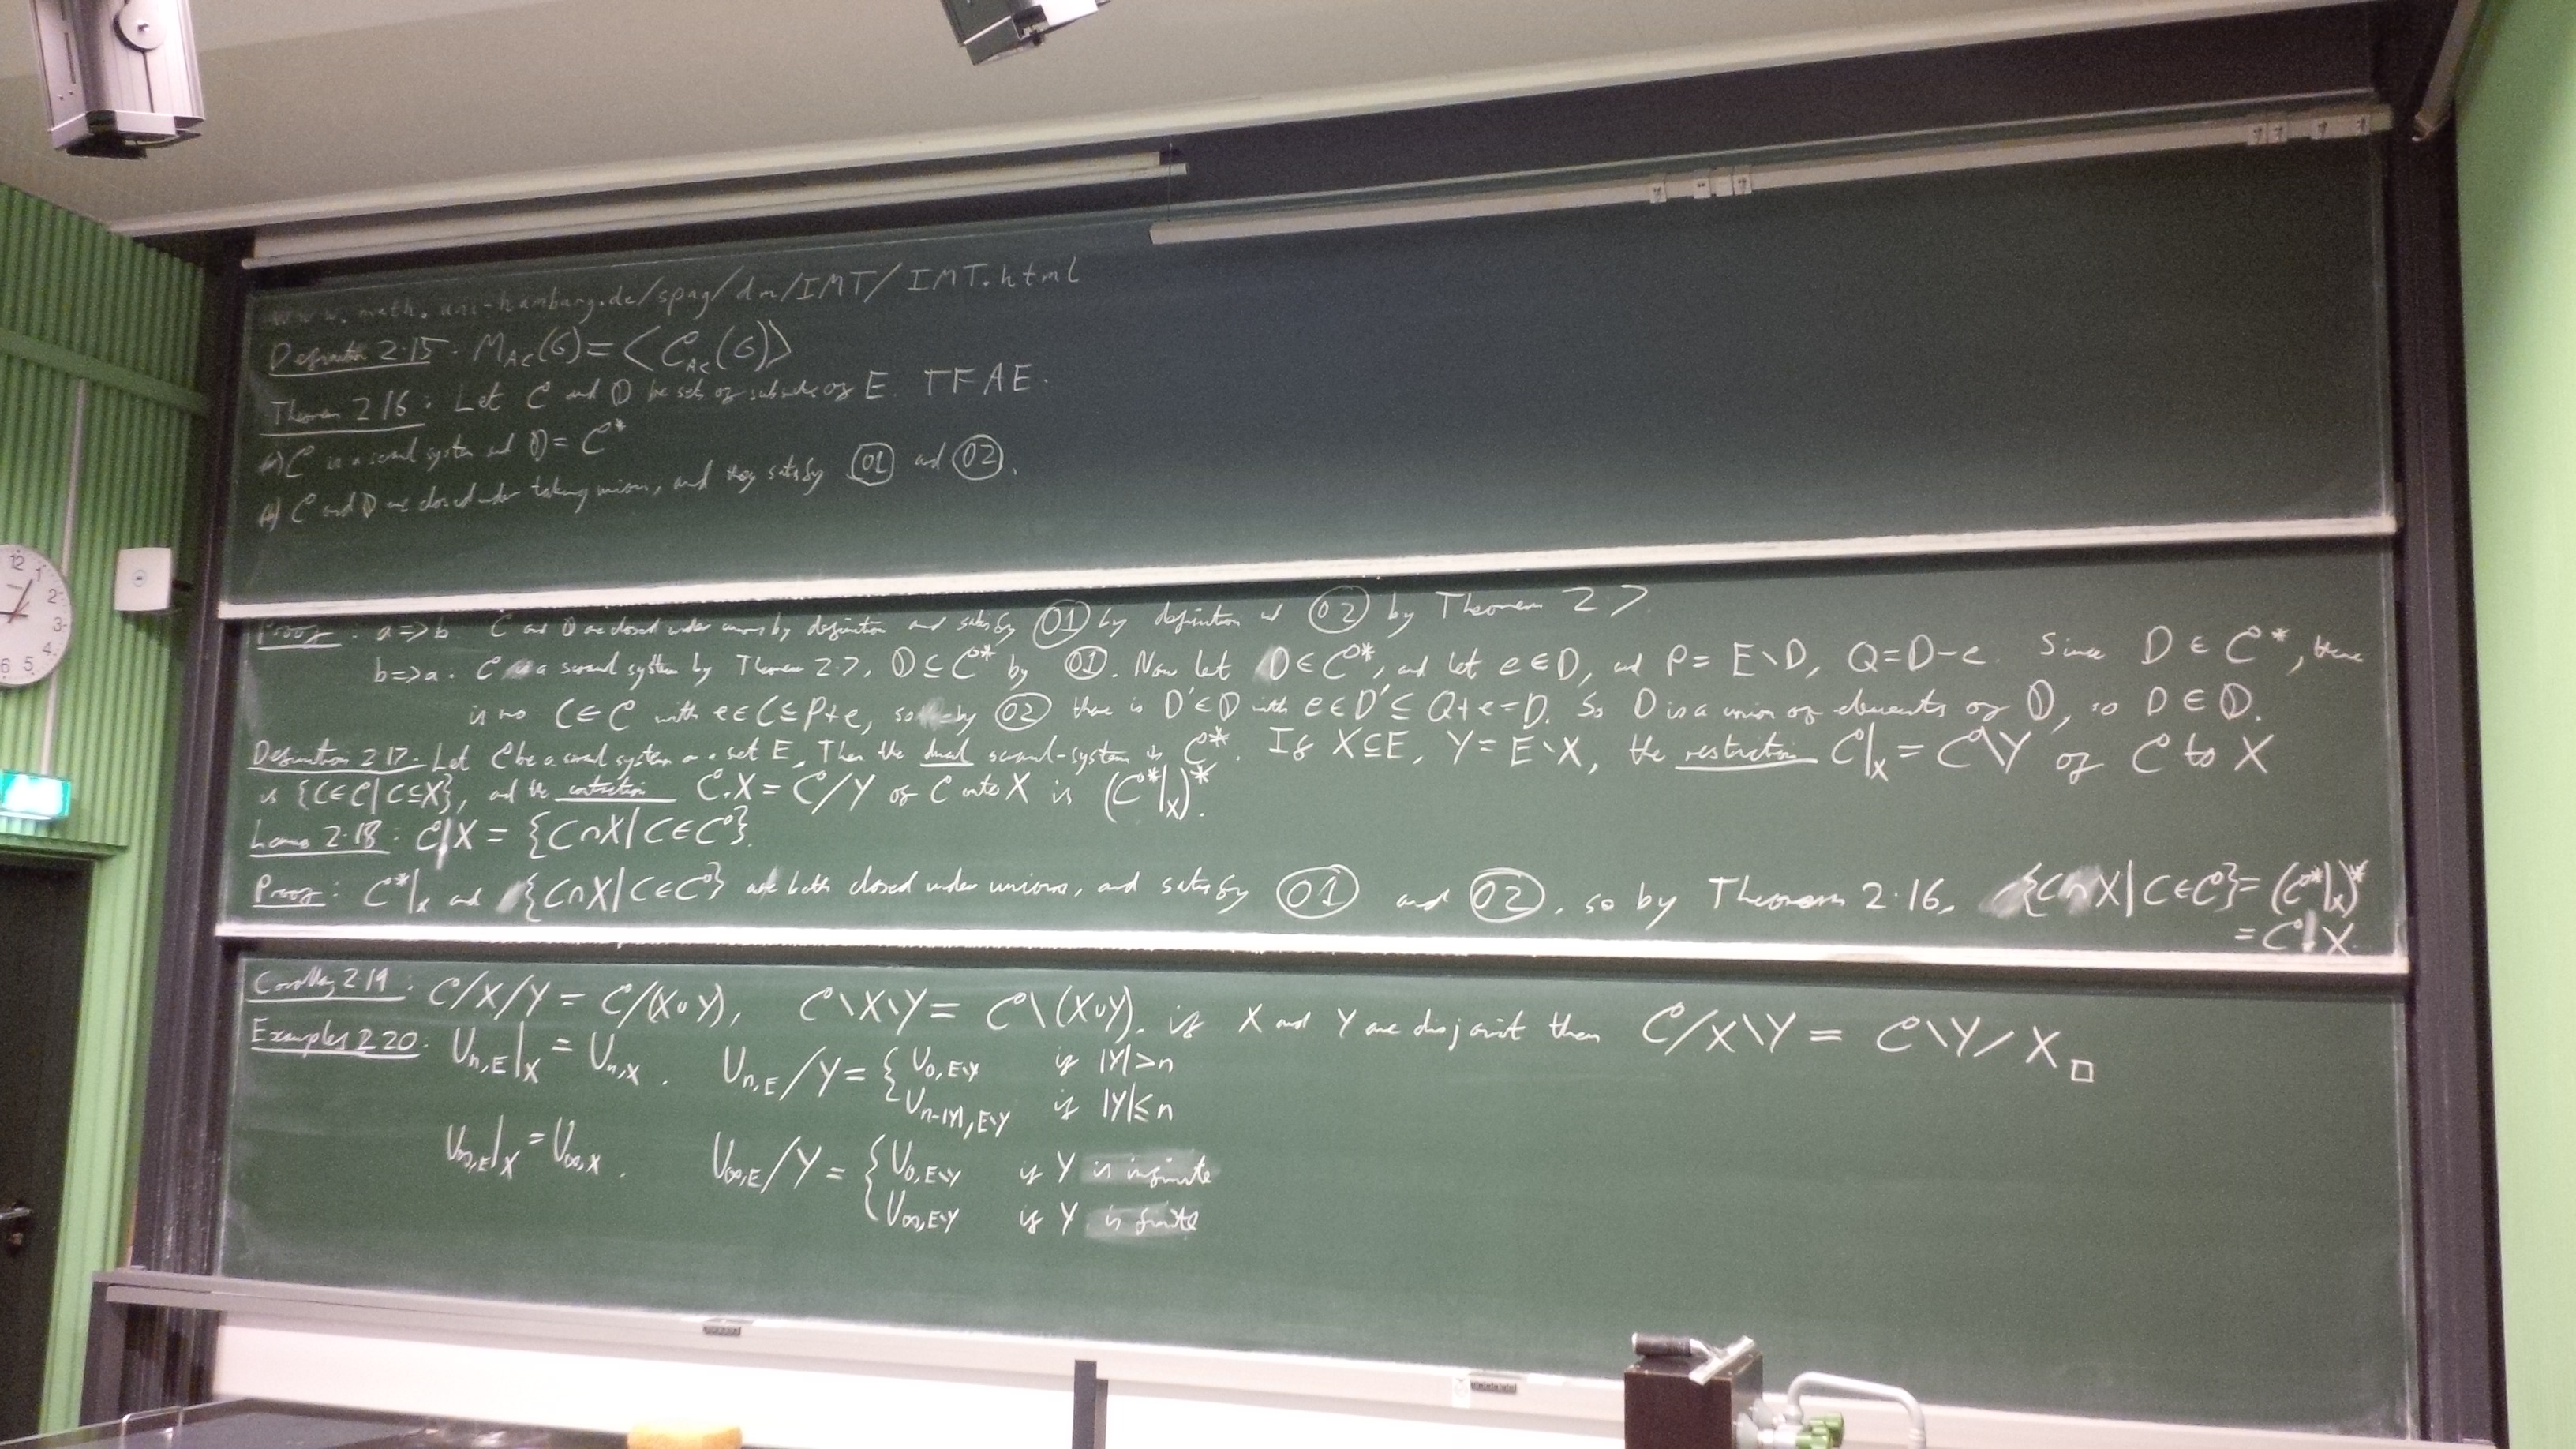 www.math.uni-hamburg.de/spag/dm/IMT/IMT.html
Definition 2.15: M_AC(G) = ⟨𝒞_AC(G)⟩
Theorem 2.16: Let 𝒞 and 𝔻 be sets of subsets of E. TFAE.
(a) 𝒞 is a scrawl system and 𝔻 = 𝒞*
(b) 𝒞 and 𝔻 are closed under taking unions, and they satisfy (O1) and (O2).
Proof: a => b. 𝒞 and 𝔻 are closed under unions by definition and satisfy (O1) by definition and (O2) by Theorem 2.7
b => a. 𝒞 is a scrawl system by Theorem 2.7, 𝔻 ⊆ 𝒞* by (O1). Now let D ∈ 𝒞*, and let e ∈ D, and P = E∖D, Q = D-e. Since D ∈ 𝒞*, there
is no C ∈ 𝒞 with e ∈ C ⊆ P+e, so by (O2) there is D' ∈ 𝔻 with e ∈ D' ⊆ Q+e = D. So D is a union of elements of 𝔻, so D ∈ 𝔻.
Definition 2.17: Let 𝒞 be a scrawl system on a set E. Then the dual scrawl-system is 𝒞*. If X ⊆ E, Y = E∖X, the restriction 𝒞|_X = 𝒞\Y of 𝒞 to X
is {C ∈ 𝒞 | C ⊆ X}, and the contraction 𝒞.X = 𝒞/Y of 𝒞 onto X is (𝒞*|_X)*.
Lemma 2.18: 𝒞.X = {C∩X | C ∈ 𝒞}.
Proof: 𝒞*|_X and {C∩X | C ∈ 𝒞} are both closed under unions, and satisfy (O1) and (O2), so by Theorem 2.16, {C∩X | C ∈ 𝒞} = (𝒞*|_X)*
= 𝒞.X.
Corollary 2.19: 𝒞/X/Y = 𝒞/(X∪Y), 𝒞\X\Y = 𝒞\(X∪Y). if X and Y are disjoint then 𝒞/X\Y = 𝒞\Y/X □
Examples 2.20: U_{n,E}|_X = U_{n,X}. U_{n,E}/Y = { U_{0,E∖Y} if |Y|>n
U_{n-|Y|,E∖Y} if |Y|≤n
U_{∞,E}|_X = U_{∞,X}. U_{∞,E}/Y = { U_{0,E∖Y} if Y is infinite
U_{∞,E∖Y} if Y is finite
12
1
2
3
4
5
6